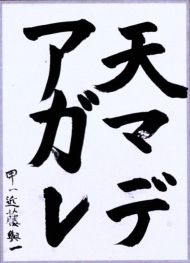 天マデ
アガレ
甲一近藤興一